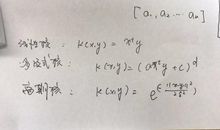 [a₁, a₂ ⋯ aₙ]
线性核: K(x,y) = xᵀy
多项式核: K(x,y) = (axᵀy + c)ᵈ
高斯核: K(x,y) = e^(-‖x-y‖²/2δ²)